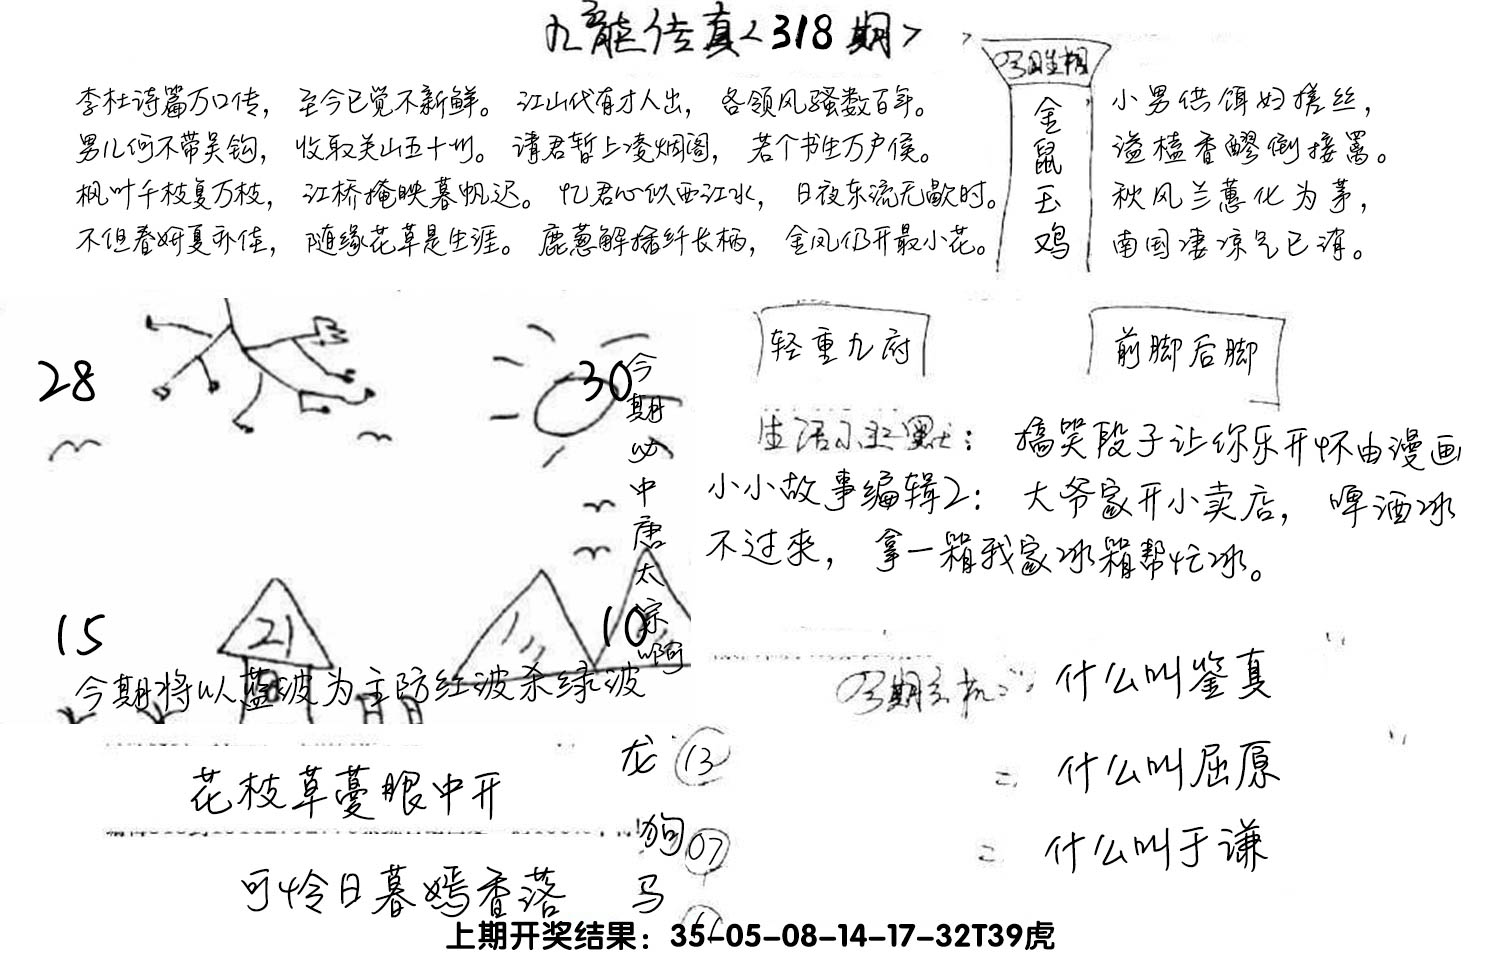 九龙传真<318期>
李杜诗篇万口传，至今已觉不新鲜。江山代有才人出，各领风骚数百年。
男儿何不带吴钩，收取关山五十州。请君暂上凌烟阁，若个书生万户侯。
枫叶千枝复万枝，江桥掩映暮帆迟。忆君心似西江水，日夜东流无歇时。
不但春妍夏亦佳，随缘花草是生涯。鹿葱解插纤长柄，金凤仍开最小花。
金鼠玉鸡
小男供饵妇搓丝，
溢榼香醪倒接罱。
秋风兰蕙化为茅，
南国凄凉气已消。
28
30
15
21
10
今期必中唐太宗啊
今期将以蓝波为主防红波杀绿波
轻重九府
前脚后脚
生活小幽默：搞笑段子让你乐开怀由漫画
小小故事编辑2：大爷家开小卖店，啤酒冰
不过来，拿一箱我家冰箱帮忙冰。
什么叫鉴真
什么叫屈原
什么叫于谦
花枝草蔓眼中开
可怜日暮嫣香落
龙 13
狗 07
马
上期开奖结果：35-05-08-14-17-32T39虎